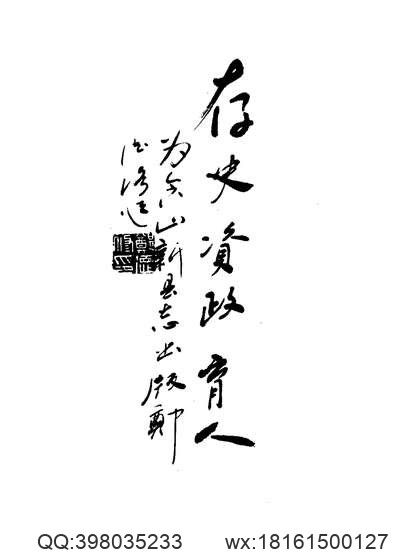 存史資政育人
为含山新县志出版鄭
QQ:398035233 wx:18161500127